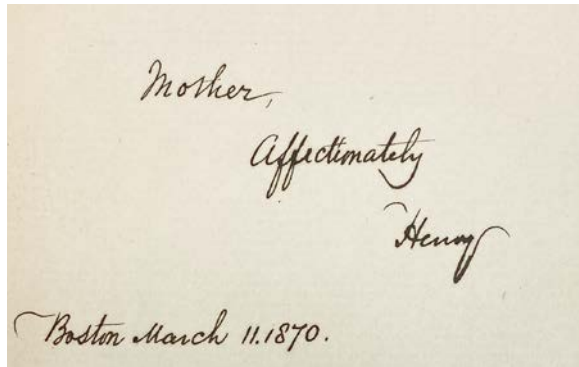 Mother,
Affectionately
Henry
Boston March 11.1870.